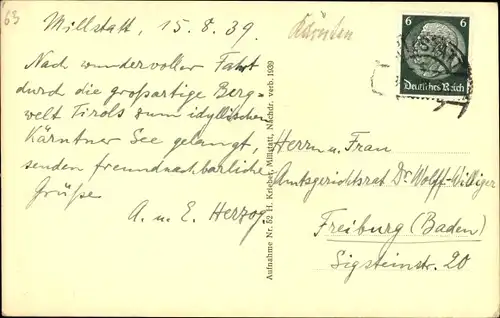 63
Millstatt, 15.8.39.
Kärnten
Nach wundervoller Fahrt
durch die großartige Berg=
welt Tirols zum idyllischen
Kärntner See gelangt,
senden freundnachbarliche
Grüße
A. u. E. Herzog.
Aufnahme Nr. 52 H. Kriebel, Millstatt, Nachdr. verb. 1939
6 6
Deutsches Reich
Herrn u. Frau
Amtsgerichtsrat Dr. Wolff-Williger
Freiburg (Baden)
Sigsteinstr. 20